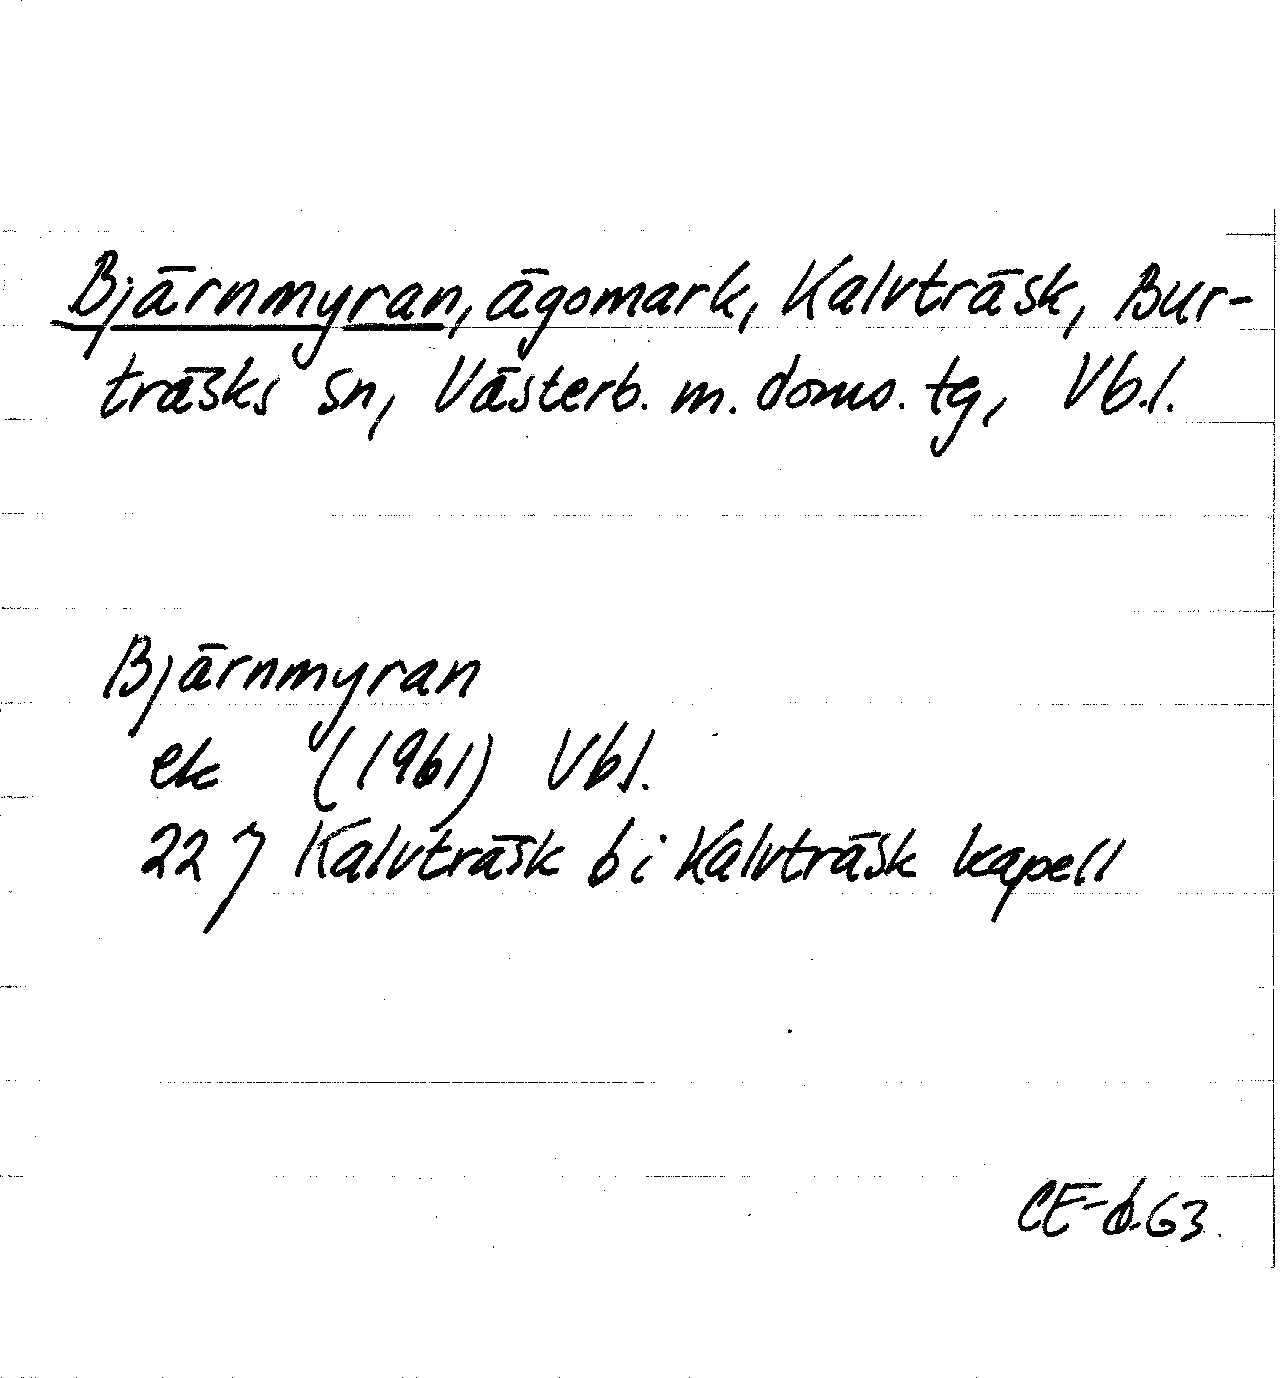 Bjärnmyran, ägomark, Kalvträsk, Bur-
träsks sn, Västerb. m. doms. tg, Vb.l.
Bjärnmyran
ek (1961) Vbl.
22 7 Kalvträsk b i Kalvträsk kapell